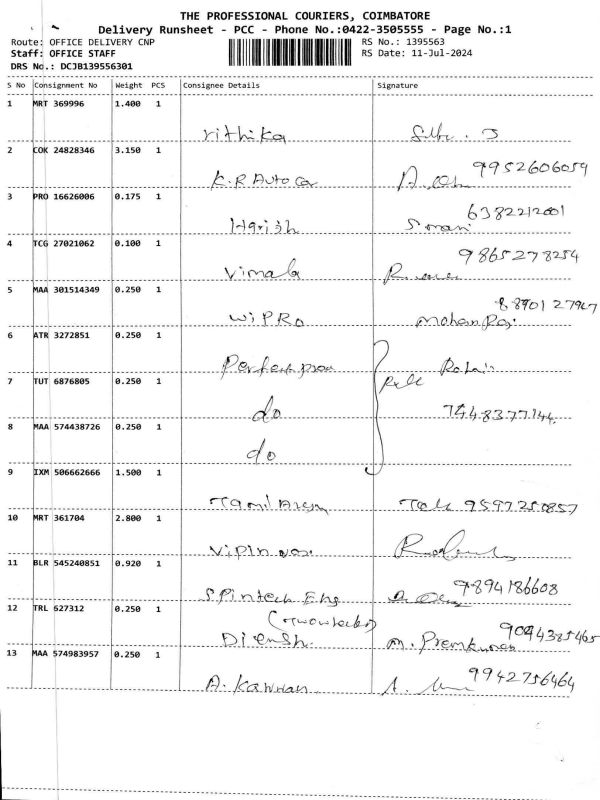 THE PROFESSIONAL COURIERS, COIMBATORE
Delivery Runsheet - PCC - Phone No.:0422-3505555 - Page No.:1
Route: OFFICE DELIVERY CNP RS No.: 1395563
Staff: OFFICE STAFF RS Date: 11-Jul-2024
DRS No.: DCJB139556301
S No Consignment No Weight PCS Consignee Details Signature
1 MRT 369996 1.400 1
rithika
2 COK 24828346 3.150 1
9952606059
K.R Auto Car
3 PRO 16626006 0.175 1
6382212001
Harish
4 TCG 27021062 0.100 1
9865278254
Vimala
5 MAA 301514349 0.250 1
WiPRO Mohan Raj
6 ATR 3272851 0.250 1
Perfect
7 TUT 6876805 0.250 1
do 7448377144
8 MAA 574438726 0.250 1
do
9 IXM 506662666 1.500 1
Tamil 9597250857
10 MRT 361704 2.800 1
Vipin
11 BLR 545240851 0.920 1
9894186608
Spintech Eng
12 TRL 627312 0.250 1
9044385465
M. Premkumar
13 MAA 574983957 0.250 1
9942756464
A. Kannan